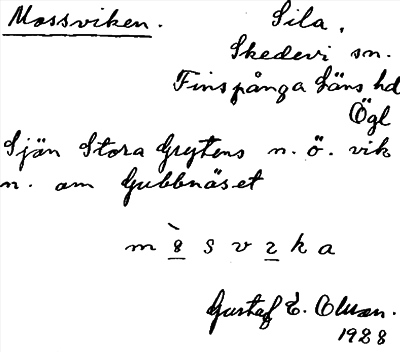 Mossviken. Sila,
Skedevi sn.
Finspånga läns hd
Ögl
Sjön Stora Grytens n. ö. vik
n. om Gubbnäset
Gustaf E.
1928